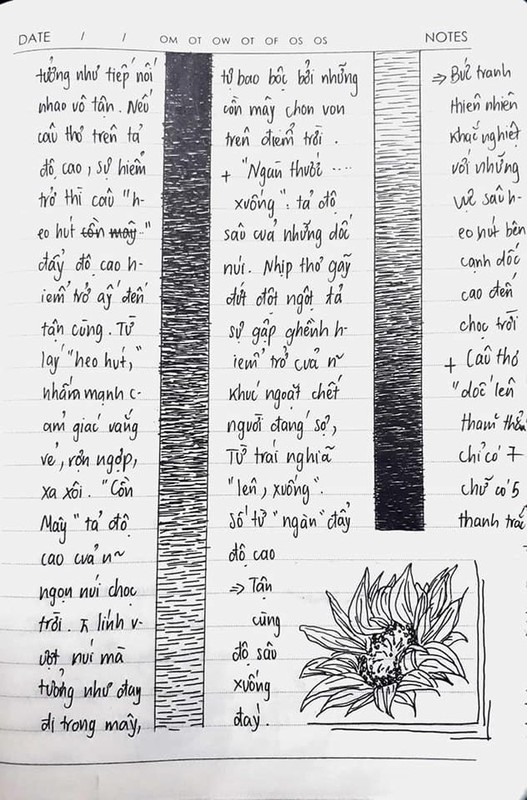 DATE / / OM OT OW OT OF OS OS NOTES
tưởng như tiếp nối
nhao vô tận. Nếu
câu thơ trên tả
độ cao, sự hiểm
trở thì câu "h-
eo hút cồn mây"
đẩy độ cao h-
iểm trở ấy đến
tận cùng. Từ
láy "heo hút,"
nhấm mạnh c-
ảm giác vắng
vẻ, rợn ngợp,
xa xôi. "Cồn
Mây" tả độ
cao của n~
ngọn núi chọc
trời.
lính v-
ượt núi mà
tưởng như đay
đi trong mây,
tự bao bộc bởi những
cồn mây chon von
trên điểm trời.
+ "Ngàn thước ....
xuống": tả độ
sâu của những dốc
núi. Nhịp thơ gãy
đứt đột ngột tả
sự gập ghềnh h-
iểm trở của n~
khúc ngoặt chết
người đáng sợ,
Từ trái nghĩa
"lên, xuống".
Số từ "ngàn" đẩy
độ cao
⇒ Tận
cùng
độ sâu
xuống
đáy.
⇒ Bức tranh
thiên nhiên
khắc nghiệt
với những
vực sâu h-
eo hút bên
cạnh dốc
cao đến
chọc trời
+ Câu thơ
"dốc lên
thăm thẳm
chỉ có 7
chữ có 5
thanh trắc